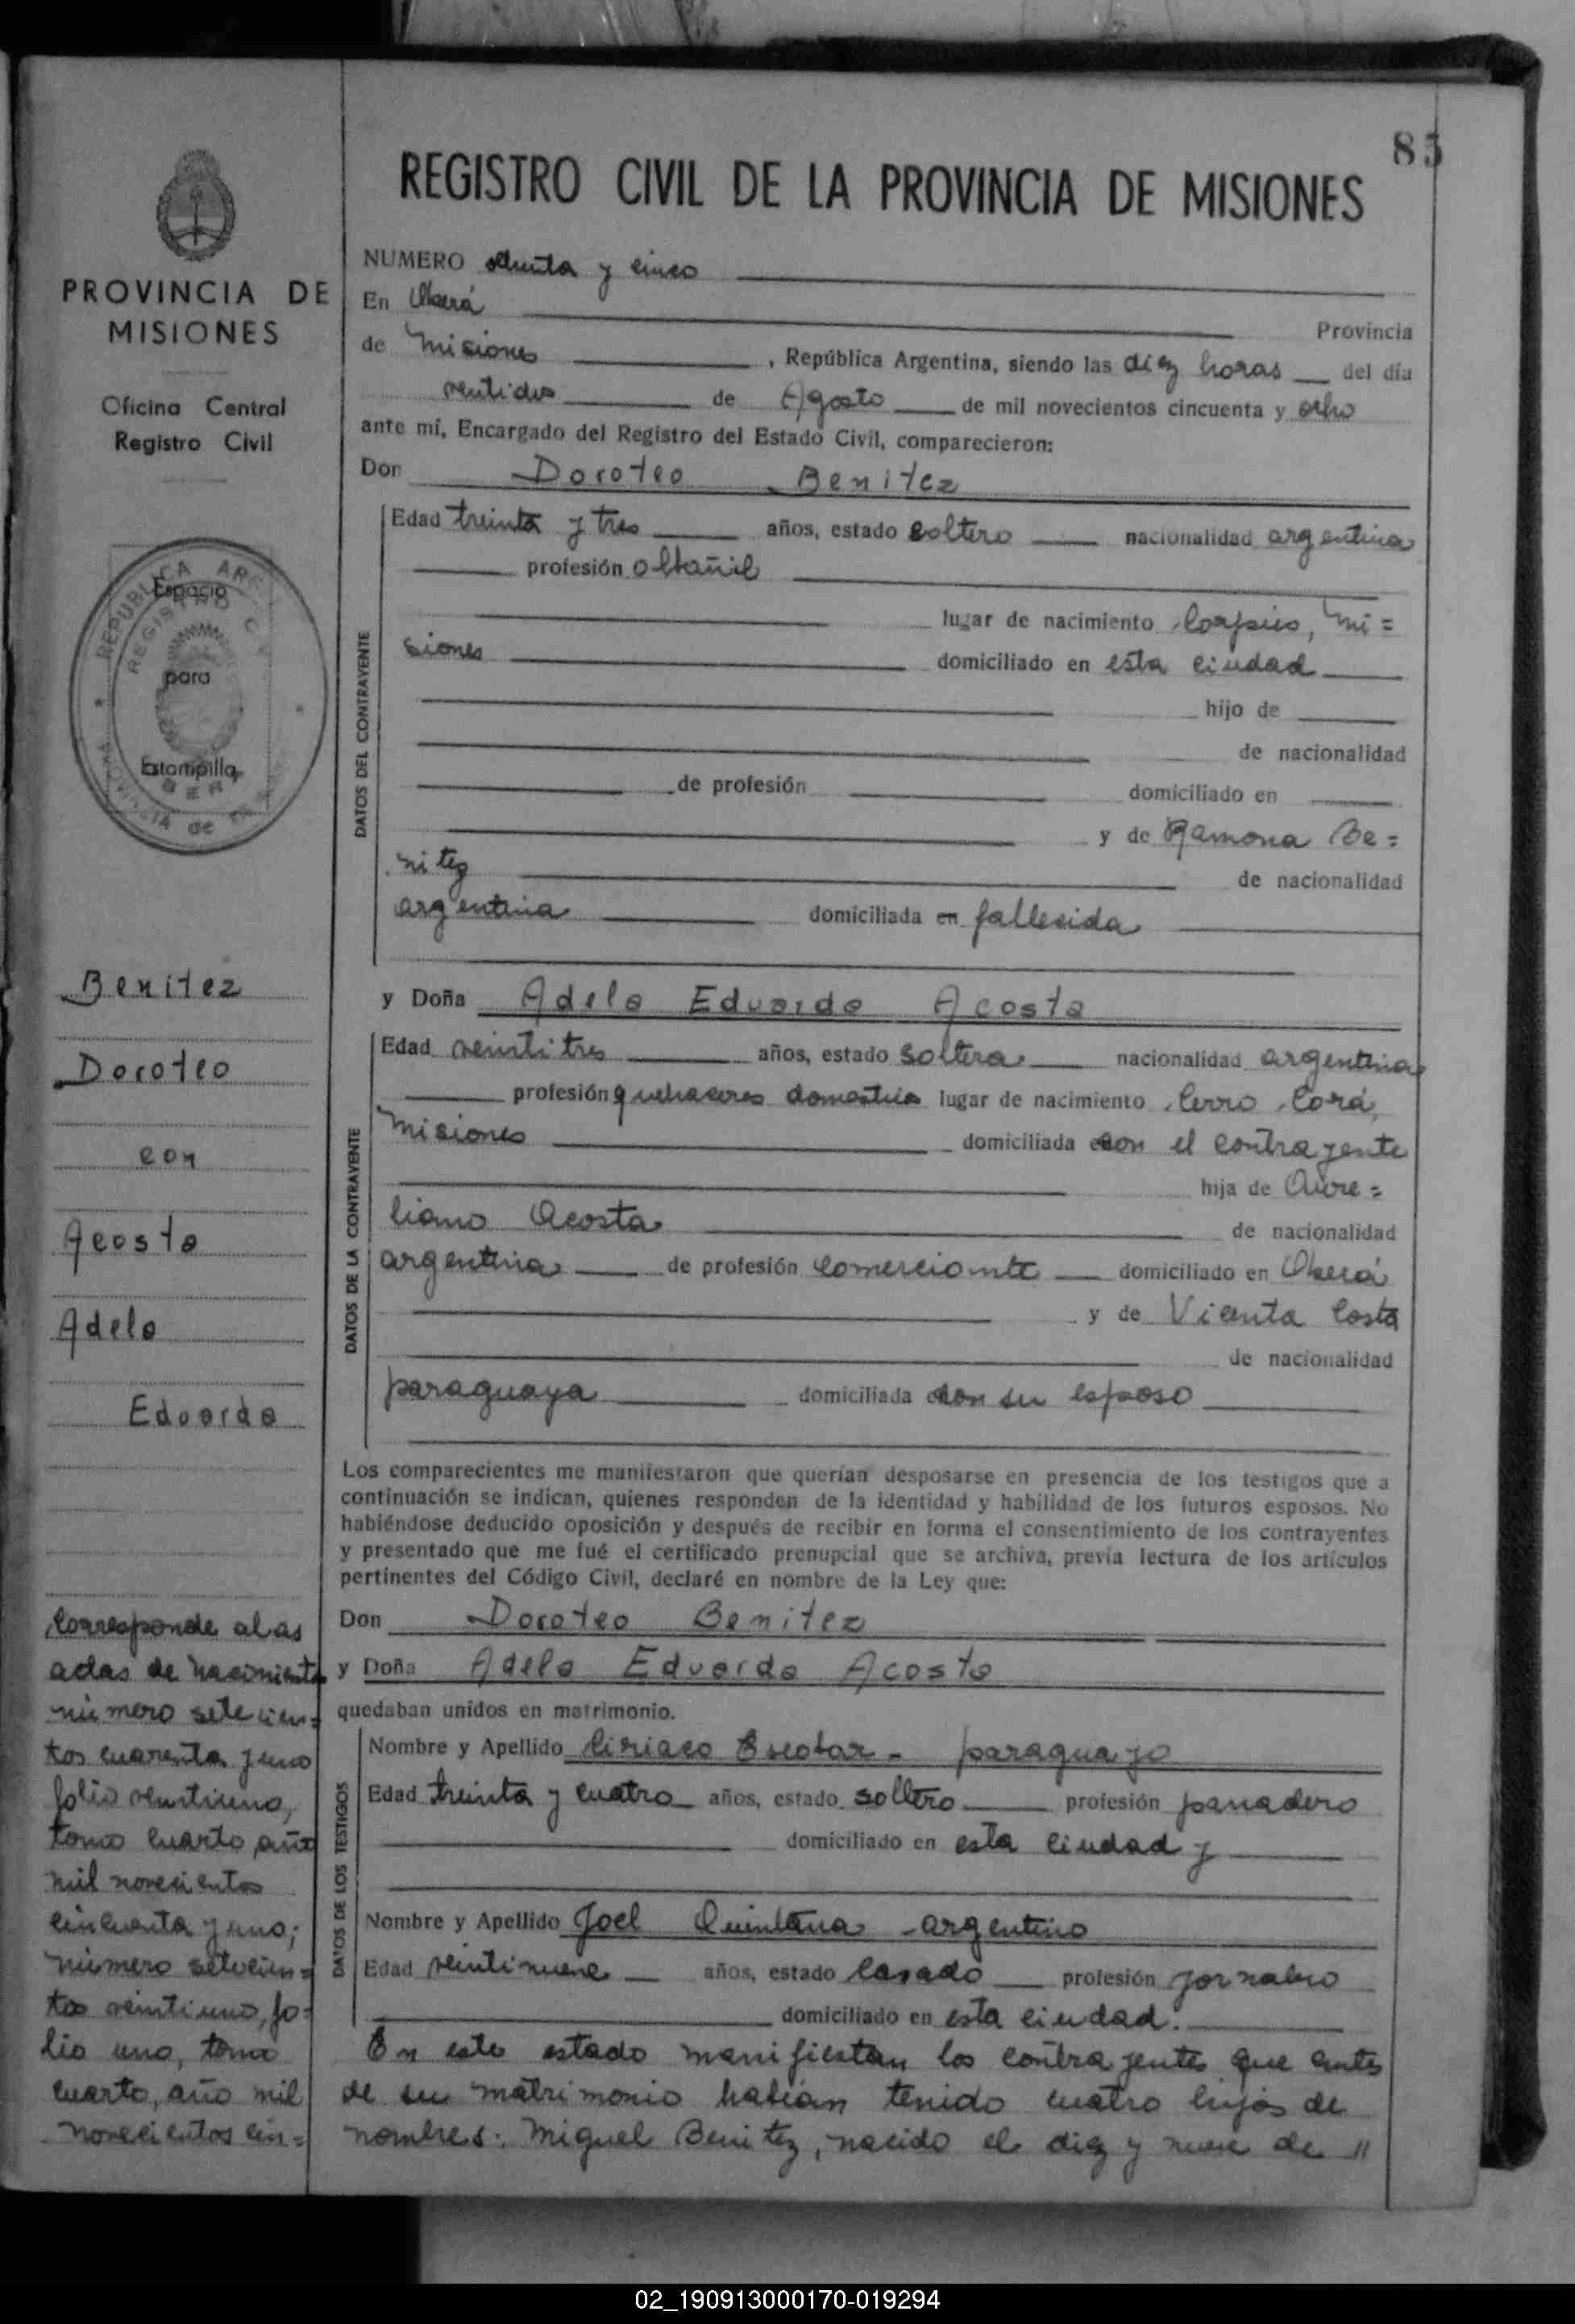 85
REGISTRO CIVIL DE LA PROVINCIA DE MISIONES
PROVINCIA DE
MISIONES
Oficina Central
Registro Civil
REPUBLICA
REGISTRO
Espacio
para
Estampilla
Benitez
Doroteo
con
Acosta
Adela
Eduarda
Corresponde a las
actas de nacimiento
número setecien=
tos cuarenta y uno
folio veintiuno,
tomo cuarto, año
mil novecientos
cincuenta y uno;
número setecien=
tos veintiuno, fo=
lio uno, tomo
cuarto, año mil
novecientos cin=
NUMERO ochenta y cinco
En Oberá
Provincia
de Misiones , República Argentina, siendo las diez horas del día
veintidos de Agosto de mil novecientos cincuenta y ocho
ante mí, Encargado del Registro del Estado Civil, comparecieron:
Don Doroteo Benitez
DATOS DEL CONTRAYENTE
Edad treinta y tres años, estado soltero nacionalidad argentina
profesión albañil
lugar de nacimiento Corpus, Mi=
siones domiciliado en esta ciudad
hijo de
de nacionalidad
de profesión domiciliado en
y de Ramona Be=
nitez
de nacionalidad
argentina domiciliada en fallecida
y Doña Adela Eduarda Acosta
DATOS DE LA CONTRAYENTE
Edad veintitres años, estado soltera nacionalidad argentina
profesión quehaceres domesticos lugar de nacimiento Cerro Corá,
Misiones domiciliada con el contrayente
hija de Aure=
liano Acosta
de nacionalidad
argentina de profesión comerciante domiciliado en Oberá
y de Vicenta Costa
de nacionalidad
paraguaya domiciliada con su esposo
Los comparecientes me manifestaron que querían desposarse en presencia de los testigos que a
continuación se indican, quienes responden de la identidad y habilidad de los futuros esposos. No
habiéndose deducido oposición y después de recibir en forma el consentimiento de los contrayentes
y presentado que me fué el certificado prenupcial que se archiva, previa lectura de los artículos
pertinentes del Código Civil, declaré en nombre de la Ley que:
Don Doroteo Benitez
y Doña Adela Eduarda Acosta
quedaban unidos en matrimonio.
DATOS DE LOS TESTIGOS
Nombre y Apellido Ciriaco Escobar - paraguayo
Edad treinta y cuatro años, estado soltero profesión panadero
domiciliado en esta ciudad y
Nombre y Apellido Joel Quintana - argentino
Edad veintinueve años, estado casado profesión jornalero
domiciliado en esta ciudad.
En este estado manifiestan los contrayentes que antes
de su matrimonio habían tenido cuatro hijos de
nombres: Miguel Benitez, nacido el diez y nueve de //
02_190913000170-019294